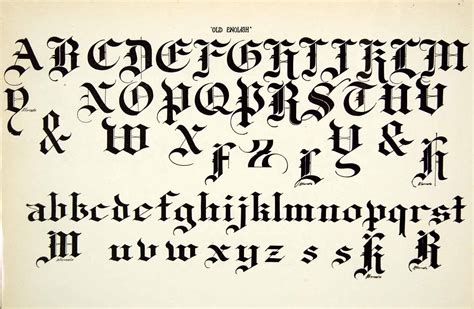 "OLD ENGLISH"
A B C D E F G H I J K L M
Y N O P Q P R S T U V
& W X F Z L Y & K
a b b c d e f g h i j k l m n o p q r s t
M u v w x y z s s K R